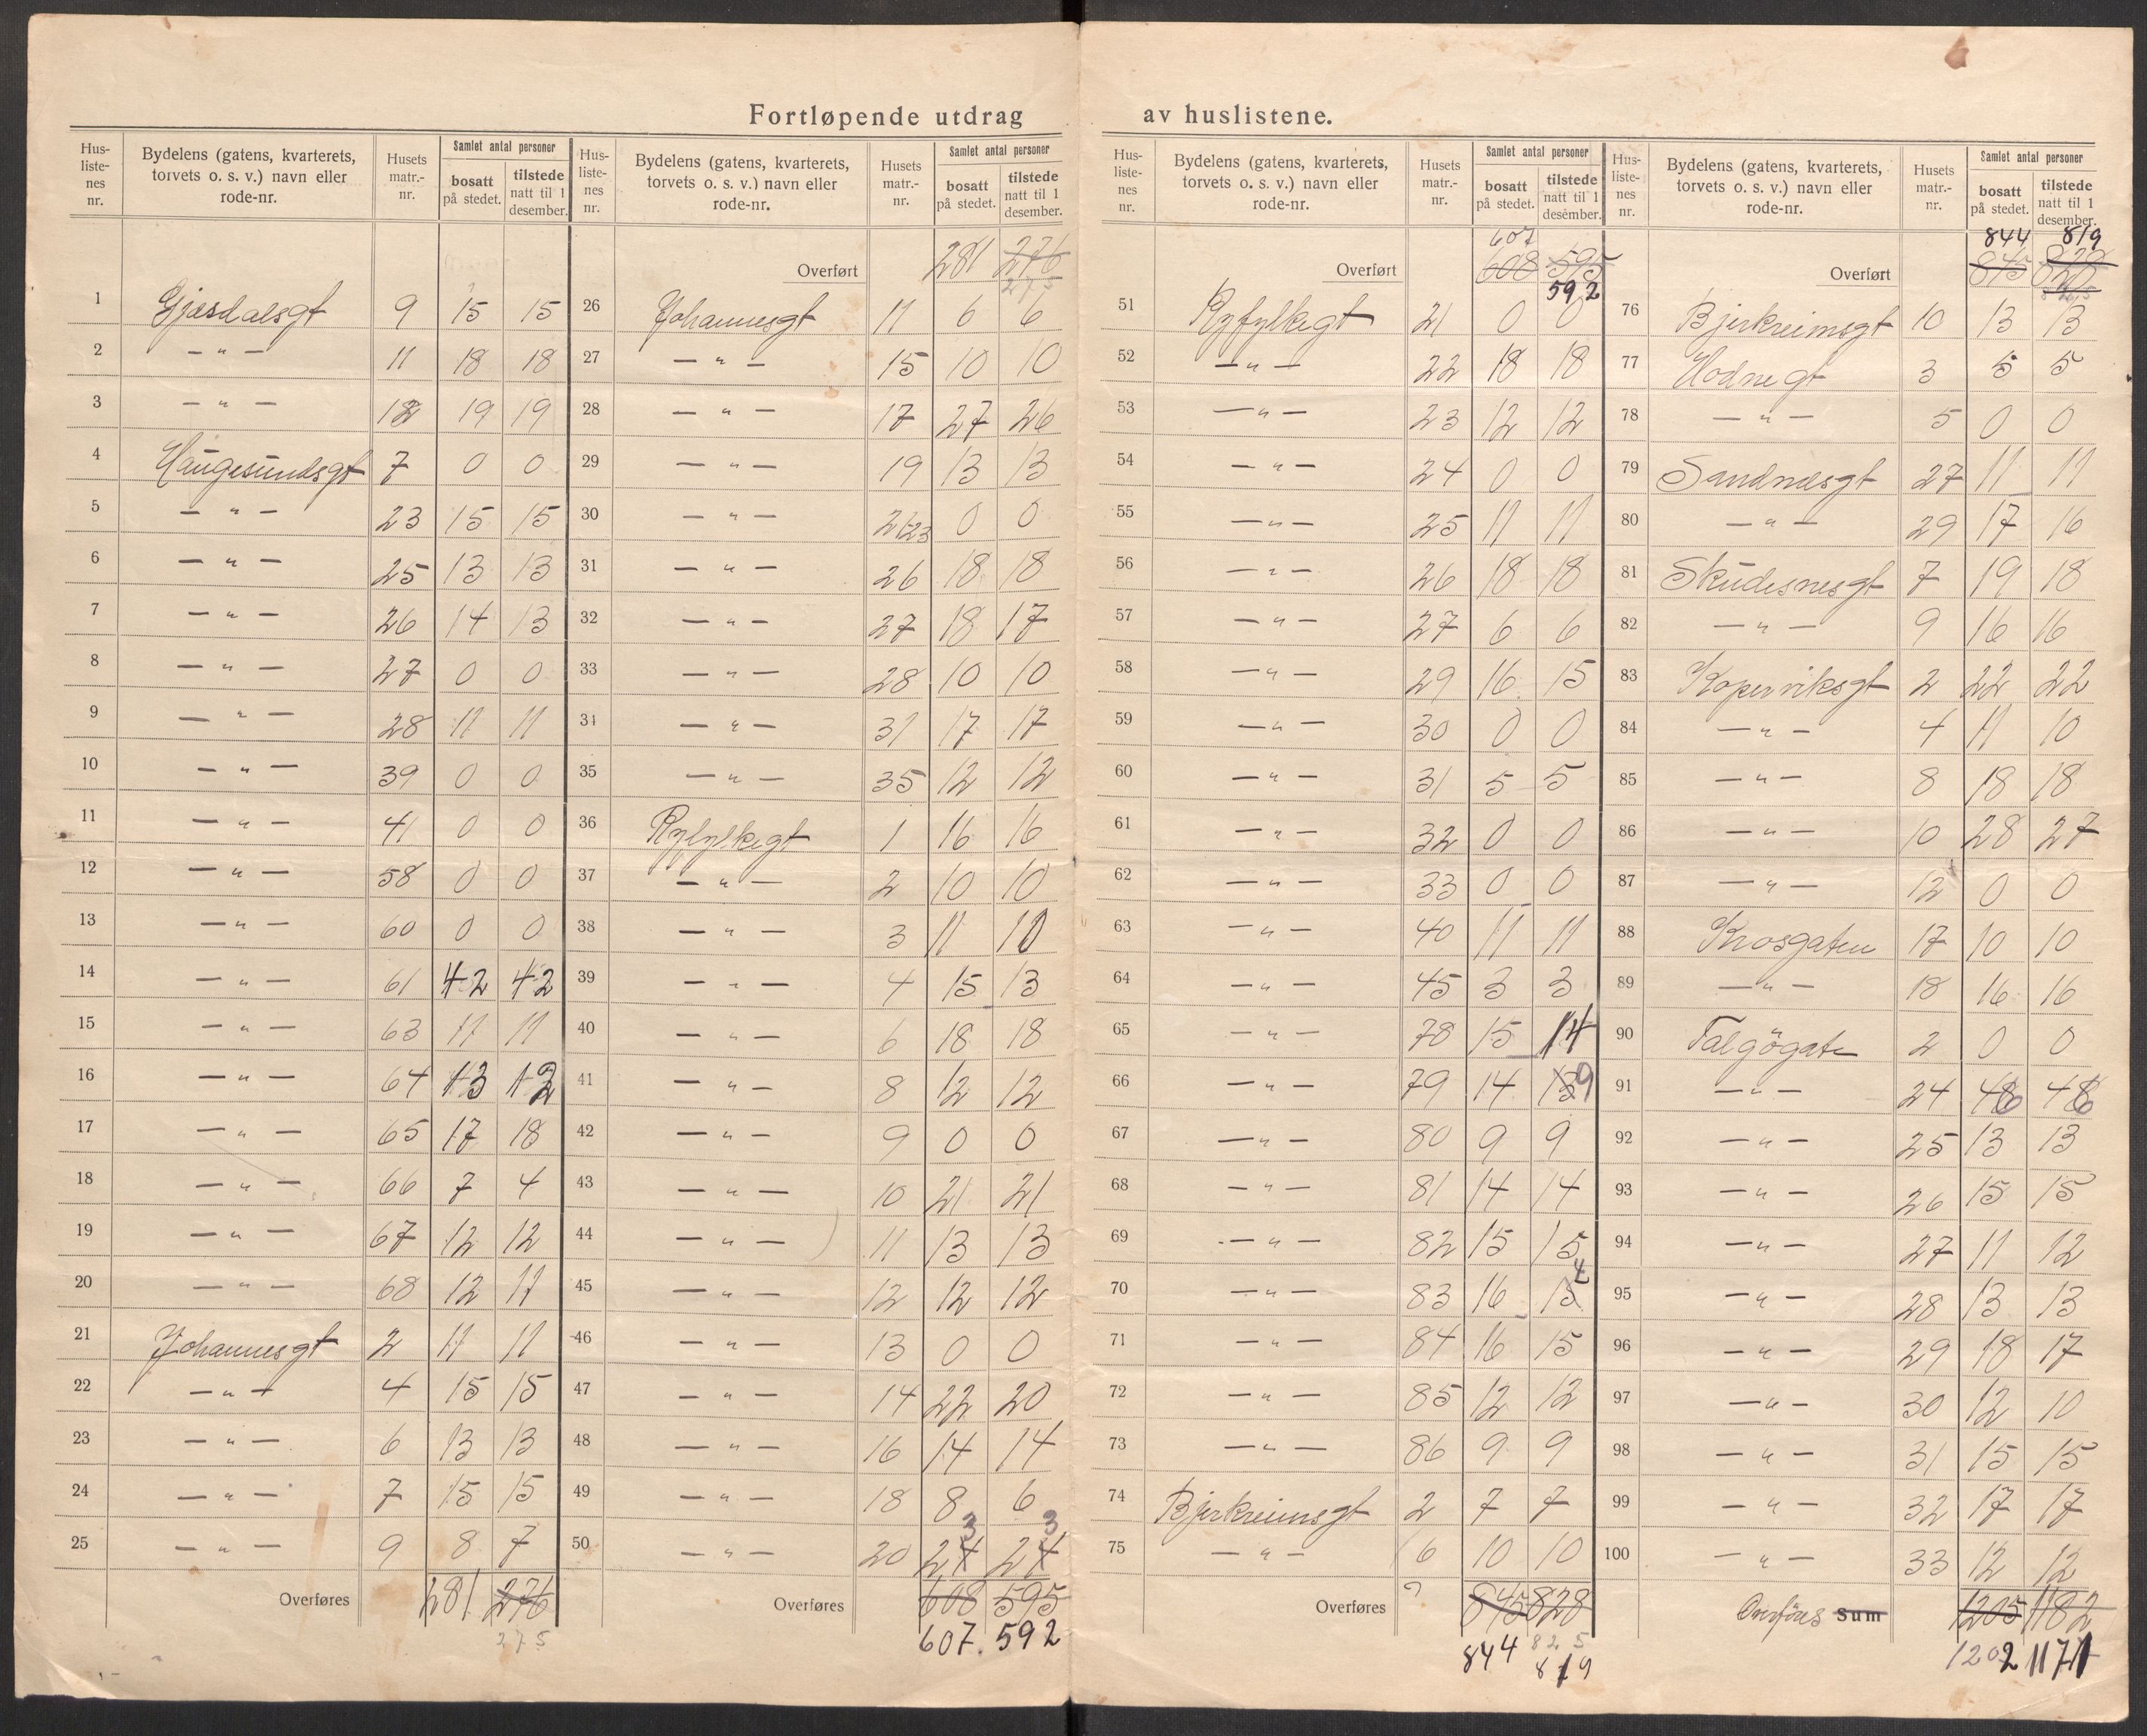 Fortløpende utdrag av huslistene.
Hus-listenes nr. | Bydelens (gatens, kvarterets, torvets o. s. v.) navn eller rode-nr. | Husets matr.-nr. | Samlet antal personer bosatt på stedet. | tilstede natt til 1 desember.
1 Gjæsdalsgt 9 15 15
2 — " — 11 18 18
3 — " — 12 19 19
4 Haugesundsgt 7 0 0
5 — " — 23 15 15
6 — " — 25 13 13
7 — " — 26 14 13
8 — " — 27 0 0
9 — " — 28 11 11
10 — " — 39 0 0
11 — " — 41 0 0
12 — " — 58 0 0
13 — " — 60 0 0
14 — " — 61 42 42
15 — " — 63 11 11
16 — " — 64 13 12
17 — " — 65 17 18
18 — " — 66 7 4
19 — " — 67 12 12
20 — " — 68 12 11
21 Johannesgt 2 11 11
22 — " — 4 15 15
23 — " — 6 13 13
24 — " — 7 15 15
25 — " — 9 8 7
Overføres 281 276
275
Hus-listenes nr. | Bydelens (gatens, kvarterets, torvets o. s. v.) navn eller rode-nr. | Husets matr.-nr. | Samlet antal personer bosatt på stedet. | tilstede natt til 1 desember.
Overført 281 276
275
26 Johannesgt 11 6 6
27 — " — 15 10 10
28 — " — 17 27 26
29 — " — 19 13 13
30 — " — 21-23 0 0
31 — " — 26 18 18
32 — " — 27 18 17
33 — " — 28 10 10
34 — " — 31 17 17
35 — " — 35 12 12
36 Ryfylkegt 1 16 16
37 — " — 2 10 10
38 — " — 3 11 10
39 — " — 4 15 13
40 — " — 6 18 18
41 — " — 8 12 12
42 — " — 9 0 0
43 — " — 10 21 21
44 — " — 11 13 13
45 — " — 12 12 12
46 — " — 13 0 0
47 — " — 14 22 20
48 — " — 16 14 14
49 — " — 18 8 6
3 3
50 — " — 20 24 24
Overføres 608 595
607. 592
Hus-listenes nr. | Bydelens (gatens, kvarterets, torvets o. s. v.) navn eller rode-nr. | Husets matr.-nr. | Samlet antal personer bosatt på stedet. | tilstede natt til 1 desember.
607
Overført 608 595
592
51 Ryfylkegt 21 0 0
52 — " — 22 18 18
53 — " — 23 12 12
54 — " — 24 0 0
55 — " — 25 11 11
56 — " — 26 18 18
57 — " — 27 6 6
58 — " — 29 16 15
59 — " — 30 0 0
60 — " — 31 5 5
61 — " — 32 0 0
62 — " — 33 0 0
63 — " — 40 11 11
64 — " — 45 3 3
65 — " — 78 15 14
66 — " — 79 14 139
67 — " — 80 9 9
68 — " — 81 14 14
69 — " — 82 15 15
4
70 — " — 83 16 15
71 — " — 84 16 15
72 — " — 85 12 12
73 — " — 86 9 9
74 Bjerkreimsgt 2 7 7
75 — " — 6 10 10
Overføres 845 828
825
844 819
Hus-listenes nr. | Bydelens (gatens, kvarterets, torvets o. s. v.) navn eller rode-nr. | Husets matr.-nr. | Samlet antal personer bosatt på stedet. | tilstede natt til 1 desember.
844 819
Overført 845 828
76 Bjerkreimsgt 10 13 13
77 Hodnegt 3 5 5
78 — " — 5 0 0
79 Sandnæsgt 27 11 11
80 — " — 29 17 16
81 Skudesnesgt 7 19 18
82 — " — 9 16 16
83 Koperviksgt 2 22 22
84 — " — 4 11 10
85 — " — 8 18 18
86 — " — 10 28 27
87 — " — 12 0 0
88 Krosgaten 17 10 10
89 — " — 18 16 16
90 Talgögate 2 0 0
91 — " — 24 46 46
92 — " — 25 13 13
93 — " — 26 15 15
94 — " — 27 11 12
95 — " — 28 13 13
96 — " — 29 18 17
97 — " — 30 12 10
98 — " — 31 15 15
99 — " — 32 17 17
100 — " — 33 12 12
Overföres Sum 1205 1182
1202 1171